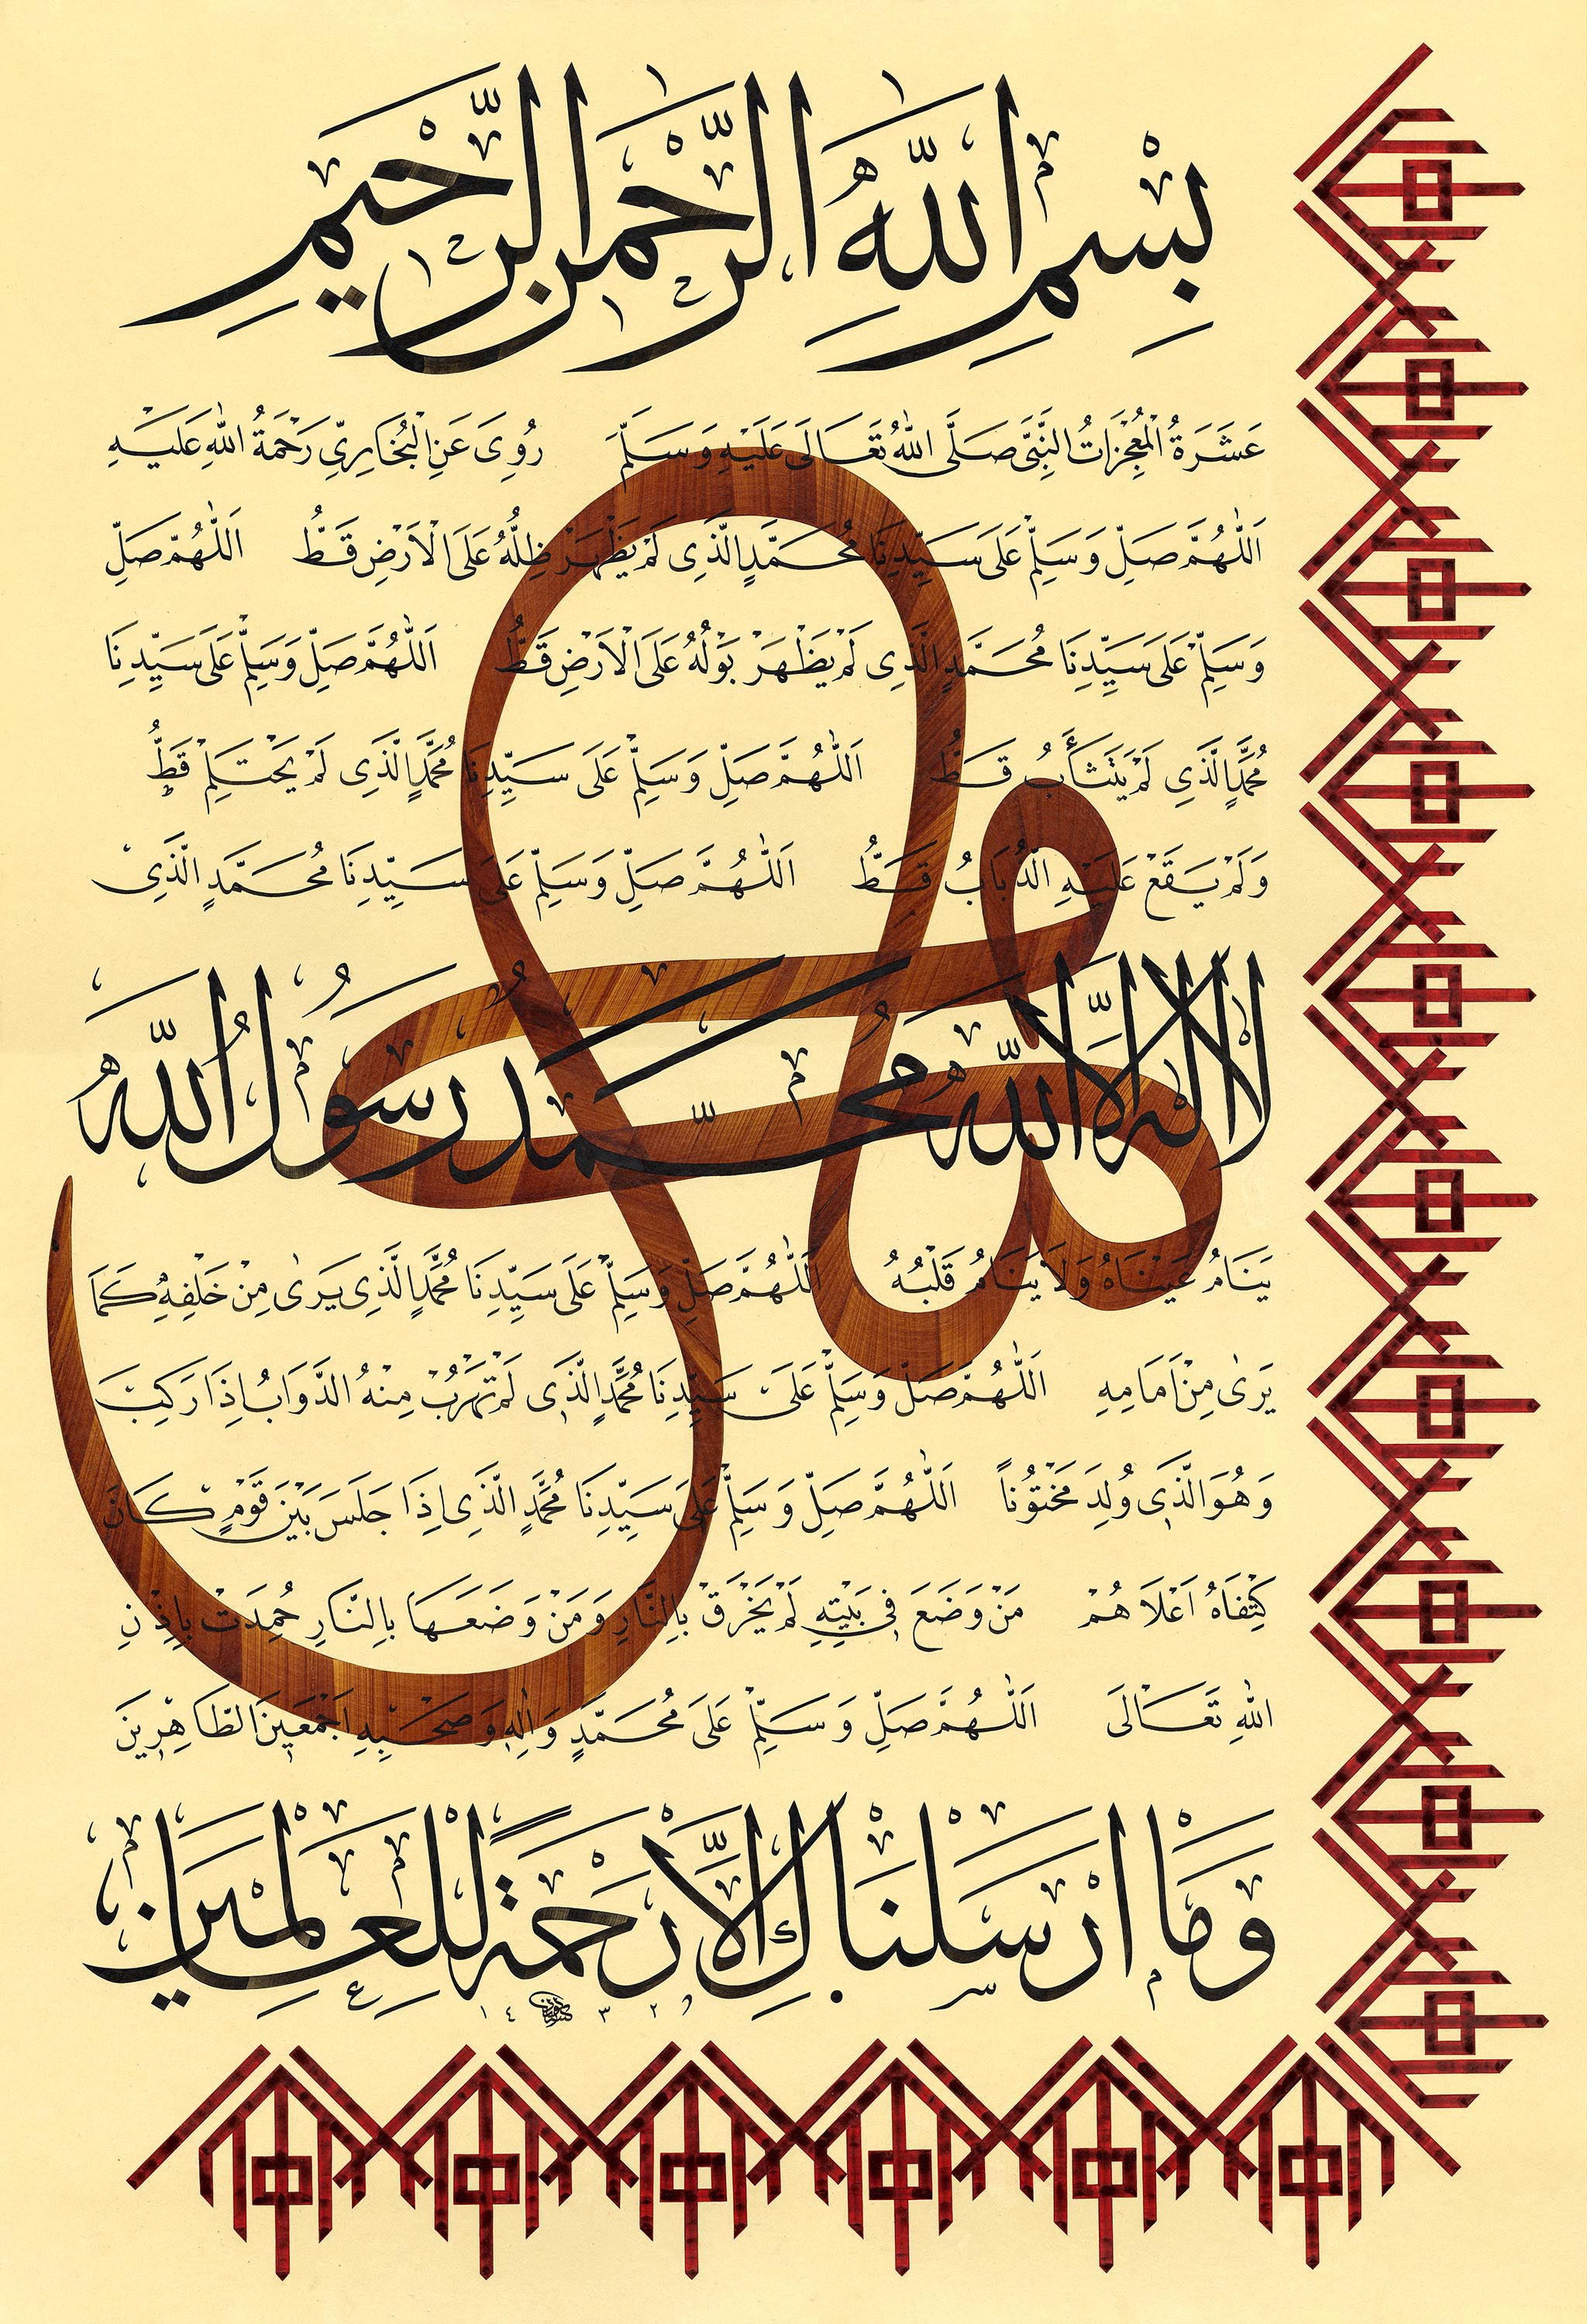 بِسْمِ اللّٰهِ الرَّحْمٰنِ الرَّحِيمِ
عَشَرَةُ الْمُعْجِزَاتُ النَّبِىِّ صَلَّى اللّٰهُ تَعَالَى عَلَيْهِ وَسَلَّمَ رُوِىَ عَنِ الْبُخَارِىِّ رَحْمَةُ اللّٰهِ عَلَيْهِ
اَللّٰهُمَّ صَلِّ وَسَلِّمْ عَلَى سَيِّدِنَا مُحَمَّدٍ الَّذِى لَمْ يَظْهَرْ ظِلُّهُ عَلَى الْاَرْضِ قَطُّ اَللّٰهُمَّ صَلِّ
وَسَلِّمْ عَلَى سَيِّدِنَا مُحَمَّدٍ الَّذِى لَمْ يَظْهَرْ بَوْلُهُ عَلَى الْاَرْضِ قَطُّ اَللّٰهُمَّ صَلِّ وَسَلِّمْ عَلَى سَيِّدِنَا
مُحَمَّدٍ الَّذِى لَمْ يَتَثَأَبُ قَطُّ اَللّٰهُمَّ صَلِّ وَسَلِّمْ عَلَى سَيِّدِنَا مُحَمَّدٍ الَّذِى لَمْ يَحْتَلِمْ قَطُّ
وَلَمْ يَقَعْ عَلَيْهِ الذُّبَابُ قَطُّ اَللّٰهُمَّ صَلِّ وَسَلِّمْ عَلَى سَيِّدِنَا مُحَمَّدٍ الَّذِىْ
لَا اِلٰهَ اِلَّا اللّٰهُ مُحَمَّدٌ رَسُولُ اللّٰهِ
يَنَامُ عَيْنَاهُ وَلَا يَنَامُ قَلْبُهُ اَللّٰهُمَّ صَلِّ وَسَلِّمْ عَلَى سَيِّدِنَا مُحَمَّدٍ الَّذِى يَرٰى مِنْ خَلْفِهِ كَمَا
يَرٰى مِنْ اَمَامِهِ اَللّٰهُمَّ صَلِّ وَسَلِّمْ عَلَى سَيِّدِنَا مُحَمَّدٍ الَّذِى لَمْ تَهْرُبْ مِنْهُ الدَّوَابُ اِذَا رَكِبَ
وَهُوَ الَّذِى وُلِدَ مَخْتُوْنًا اَللّٰهُمَّ صَلِّ وَسَلِّمْ عَلَى سَيِّدِنَا مُحَمَّدٍ الَّذِى اِذَا جَلَسَ بَيْنَ قَوْمٍ كَانَ
كِتْفَاهُ اَعْلَاهُمْ مَنْ وَضَعَ فِى بَيْتِهِ لَمْ يَحْرَقْ بِالنَّارِ وَمَنْ وَضَعَهَا بِالنَّارِ خُمِدَتْ بِاِذْنِ
اللّٰهِ تَعَالَى اَللّٰهُمَّ صَلِّ وَسَلِّمْ عَلَى مُحَمَّدٍ وَاٰلِهِ وَصَحْبِهِ اَجْمَعِينَ الطَّاهِرِينَ
وَمَا اَرْسَلْنَاكَ اِلَّا رَحْمَةً لِلْعَالَمِينَ
١٤٣٢